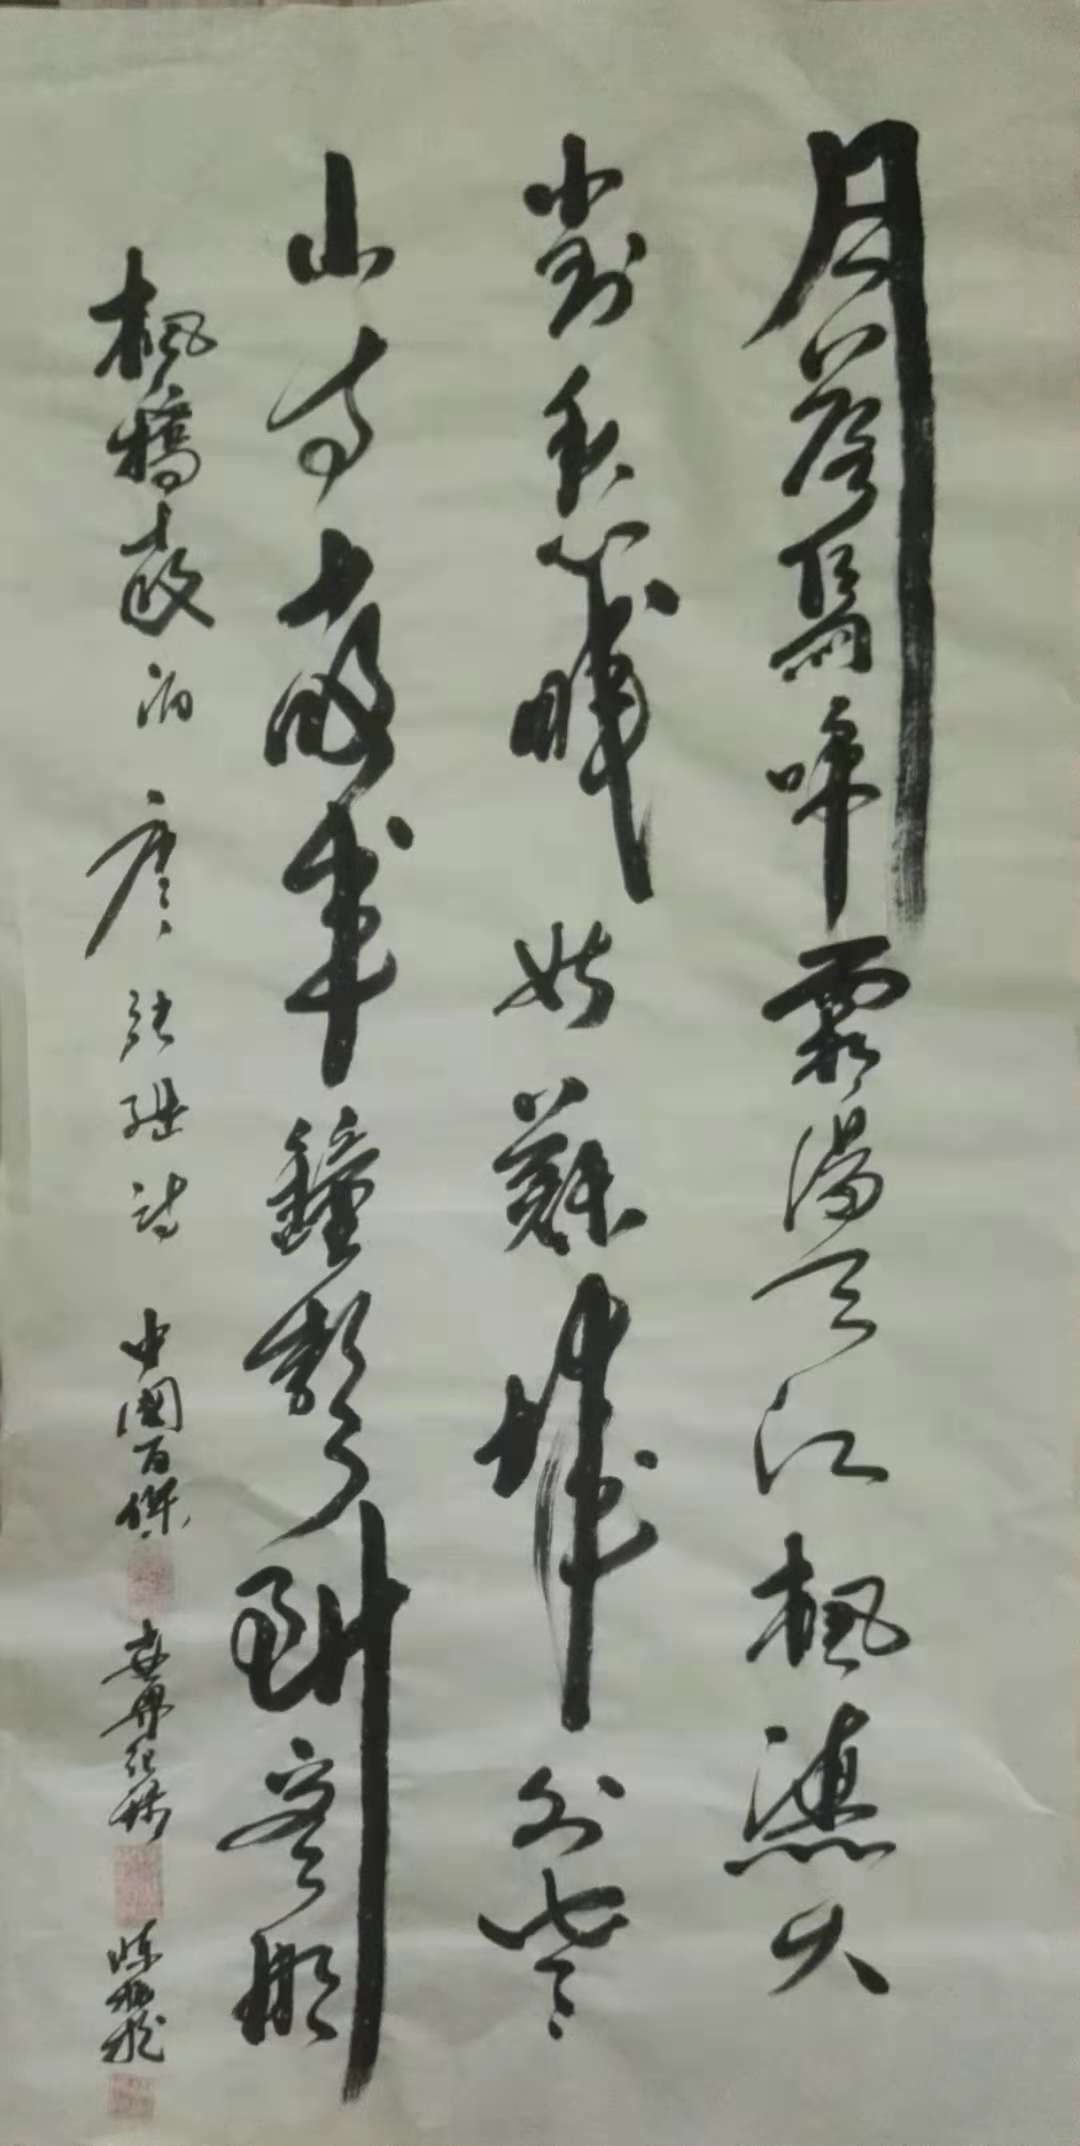 月落烏啼霜滿天江楓漁火
對愁眠姑蘇城外寒
山寺夜半鐘聲到客船
楓橋夜泊 唐 張繼詩 中國百傑